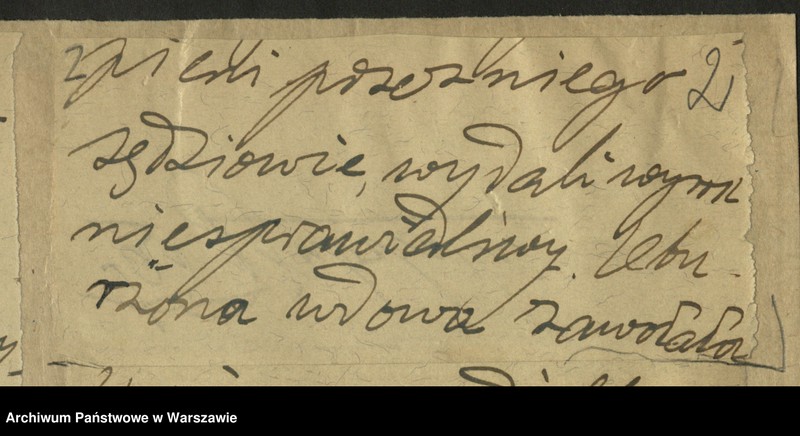 pieni przez niego 2
sędziowie, wydali wyrok
niesprawiedliwy. Wzbu-
rzona wdowa zawołała
Archiwum Państwowe w Warszawie